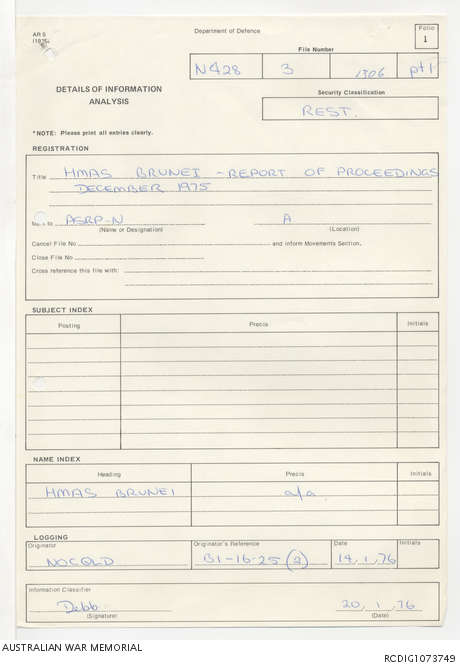 AR 5
Department of Defence
Folio
1
File Number
N428 3 1306 pt 1
DETAILS OF INFORMATION
ANALYSIS
Security Classification
REST.
*NOTE: Please print all entries clearly.
REGISTRATION
Title HMAS BRUNEI - REPORT OF PROCEEDINGS
DECEMBER 1975
to ASRP-N A
(Name or Designation) (Location)
Cancel File No and inform Movements Section.
Close File No
Cross reference this file with:
SUBJECT INDEX
Posting Precis Initials
NAME INDEX
Heading Precis Initials
HMAS BRUNEI a/a
LOGGING
Originator Originator's Reference Date Initials
NOCQLD B1-16-25 (2) 14.1.76
Information Classifier
Debb 20.1.76
(Signature) (Date)
AUSTRALIAN WAR MEMORIAL
RCDIG1073749